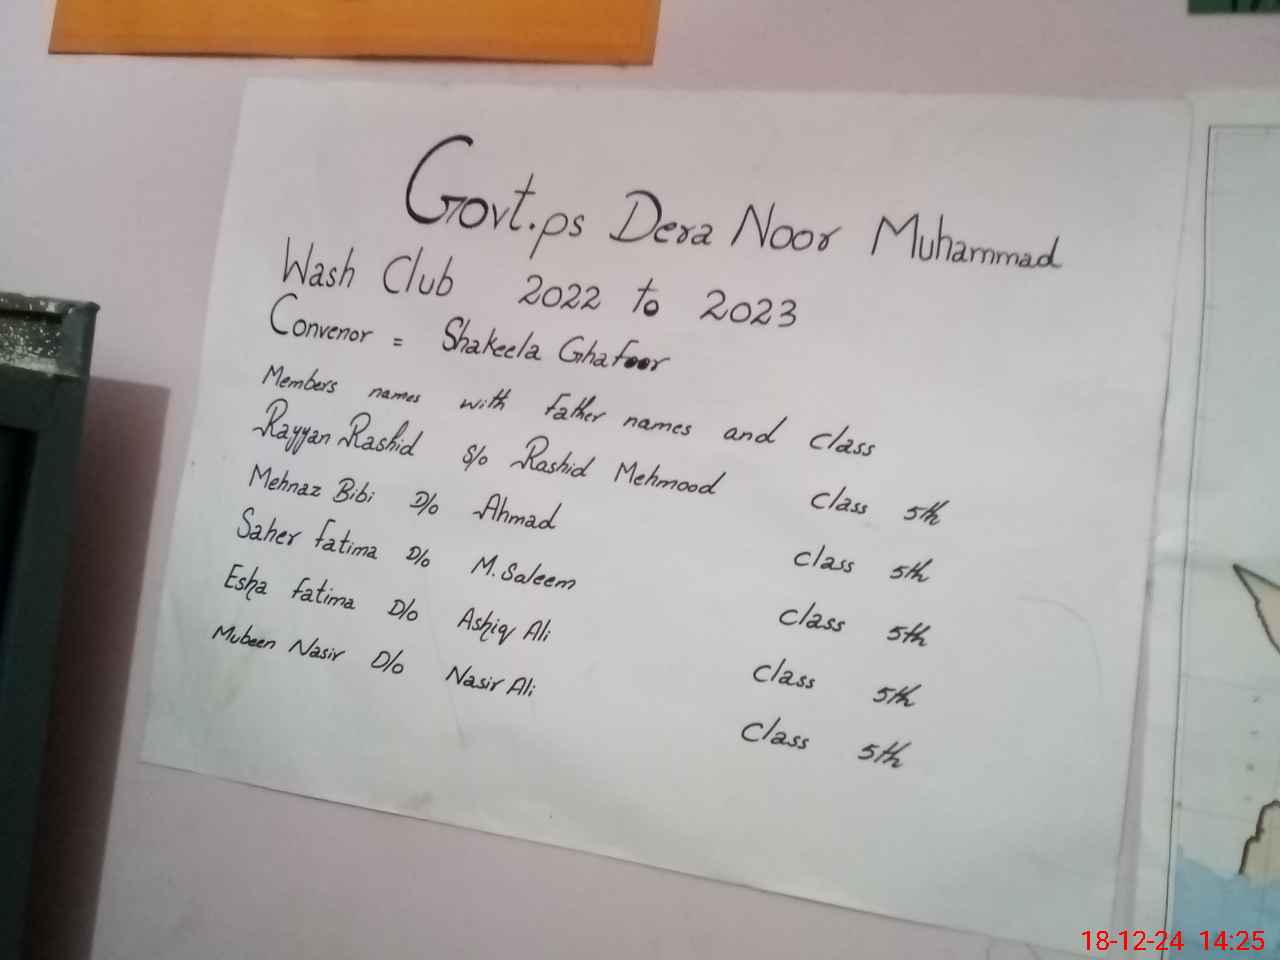 Govt.ps Dera Noor Muhammad
Wash Club 2022 to 2023
Convenor = Shakeela Ghafoor
Members names with father names and class
Rayyan Rashid S/o Rashid Mehmood class 5th
Mehnaz Bibi D/o Ahmad class 5th
Saher fatima D/o M.Saleem class 5th
Esha fatima D/o Ashiq Ali class 5th
Mubeen Nasir D/o Nasir Ali class 5th
18-12-24 14:25